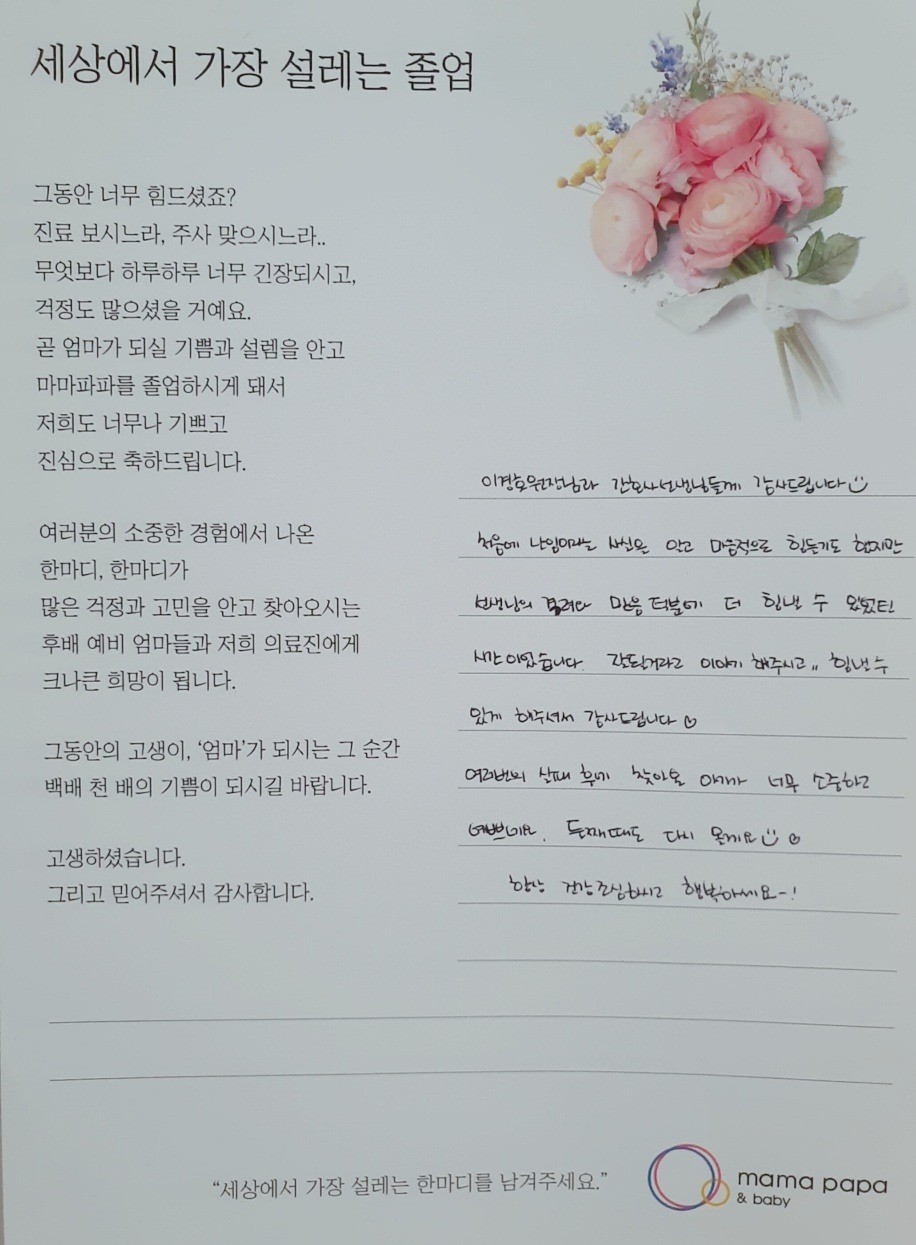 세상에서 가장 설레는 졸업
그동안 너무 힘드셨죠?
진료 보시느라, 주사 맞으시느라..
무엇보다 하루하루 너무 긴장되시고,
걱정도 많으셨을 거예요.
곧 엄마가 되실 기쁨과 설렘을 안고
마마파파를 졸업하시게 돼서
저희도 너무나 기쁘고
진심으로 축하드립니다.
여러분의 소중한 경험에서 나온
한마디, 한마디가
많은 걱정과 고민을 안고 찾아오시는
후배 예비 엄마들과 저희 의료진에게
크나큰 희망이 됩니다.
그동안의 고생이, ‘엄마’가 되시는 그 순간
백배 천 배의 기쁨이 되시길 바랍니다.
고생하셨습니다.
그리고 믿어주셔서 감사합니다.
이경호원장님과 간호사선생님들께 감사드립니다
처음에 난임이라는 사실을 안고 마음적으로 힘들기도 했지만
선생님의 격려와 믿음 덕분에 더 힘낼 수 있었던
시간이었습니다. 잘될거라고 이야기 해주시고,, 힘낼 수
있게 해주셔서 감사드립니다 ♡
여러번의 실패 후에 찾아온 아기가 너무 소중하고
예쁘네요. 둘째때도 다시 올게요 ♡
항상 건강조심하시고 행복하세요~!
“세상에서 가장 설레는 한마디를 남겨주세요.”
mama papa
& baby